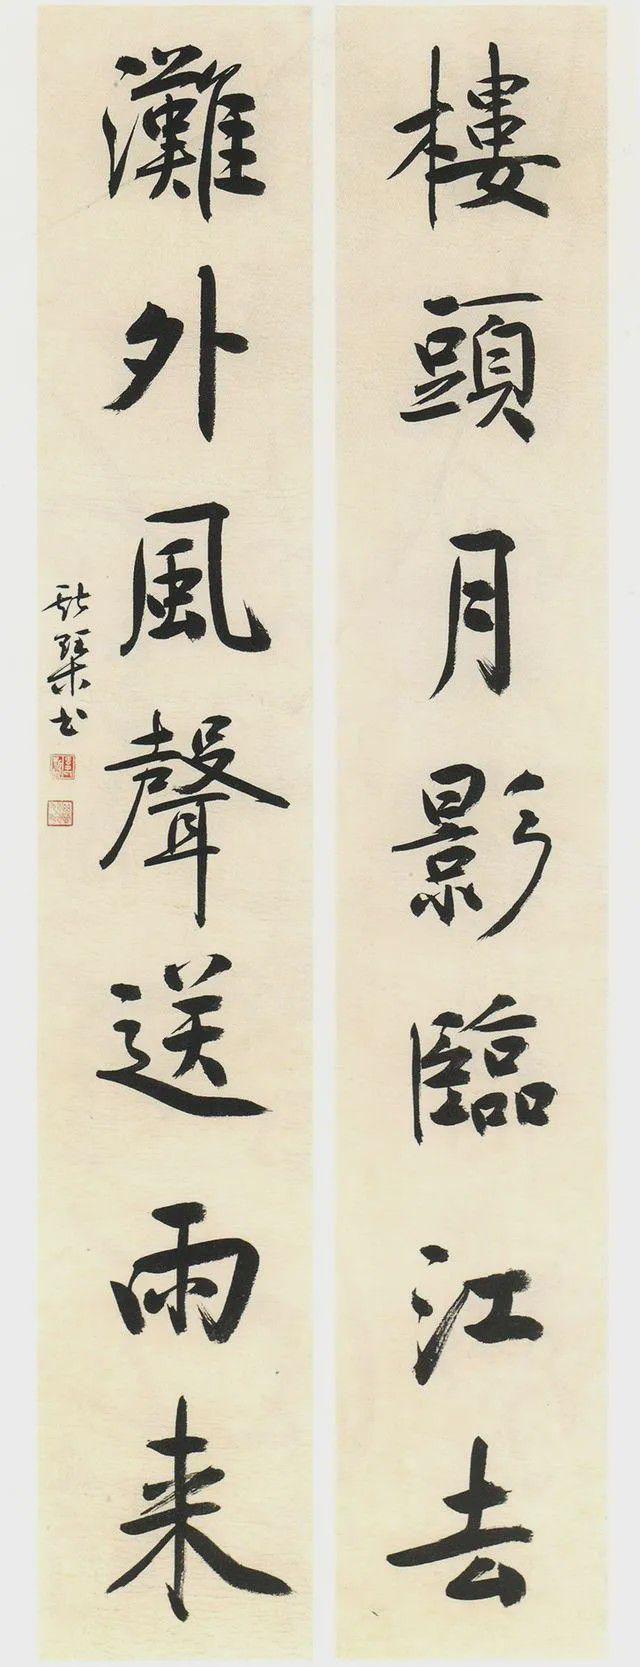 樓頭月影臨江去
灘外風聲送雨来
書